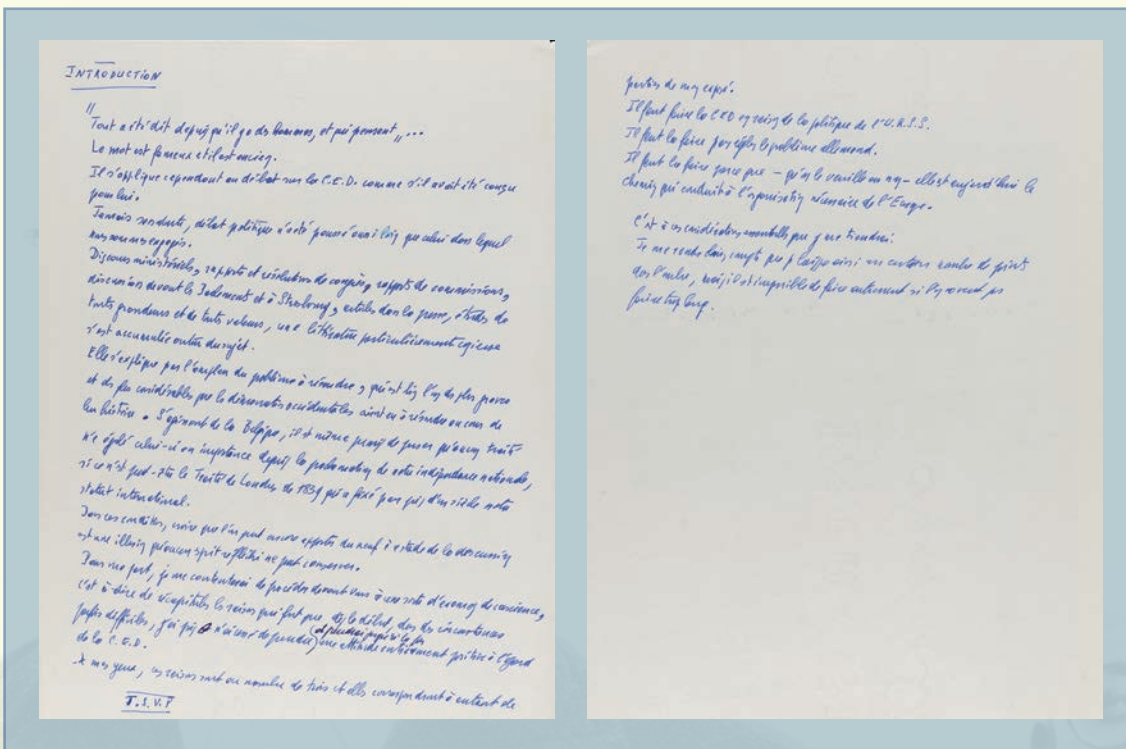 INTRODUCTION
"Tout a été dit depuis qu'il y a des hommes, et qui pensent", ...
Le mot est fameux et il est ancien.
Il s'applique cependant au débat sur la C.E.D. comme s'il avait été conçu
pour lui.
Jamais sans doute, débat politique n'a été poussé aussi loin que celui dans lequel
nous sommes engagés.
Discours ministériels, rapports et résolutions de congrès, rapports de commissions,
discussions devant le Parlement et à Strasbourg, articles dans la presse, études de
toutes grandeurs et de toutes valeurs, une littérature particulièrement copieuse
s'est accumulée autour du sujet.
Elle s'explique par l'ampleur du problème à résoudre, qui est l'un des plus graves
et des plus considérables que les démocraties occidentales aient eu à résoudre au cours de
leur histoire. S'agissant de la Belgique, il est même permis de penser qu'aucun traité
n'a égalé celui-ci en importance depuis la proclamation de notre indépendance nationale,
si ce n'est peut-être le Traité de Londres de 1839 qui a fixé pour plus d'un siècle notre
statut international.
Dans ces conditions, croire que l'on peut encore apporter du neuf à ce stade de la discussion
est une illusion qu'aucun esprit réfléchi ne peut conserver.
Pour ma part, je me contenterai de procéder devant vous à une sorte d'examen de conscience,
c'est-à-dire de récapituler les raisons qui font que, dès le début, dans des circonstances
parfois difficiles, j'ai pris et n'ai cessé de prendre une attitude entièrement positive à l'égard
de la C.E.D.
A mes yeux, ces raisons sont au nombre de trois et elles correspondent à autant de
T.S.V.P
parties de mon exposé.
Il faut faire la CED en raison de la politique de l'U.R.S.S.
Il faut la faire pour régler le problème allemand.
Il faut la faire parce que – qu'on le veuille ou non – elle est aujourd'hui le
chemin qui conduit à l'organisation nécessaire de l'Europe.
C'est à ces considérations essentielles que je me tiendrai.
Je me rends bien compte que je laisse ainsi un certain nombre de points
dans l'ombre, mais il est impossible de faire autrement si l'on ne veut pas
faire trop long.